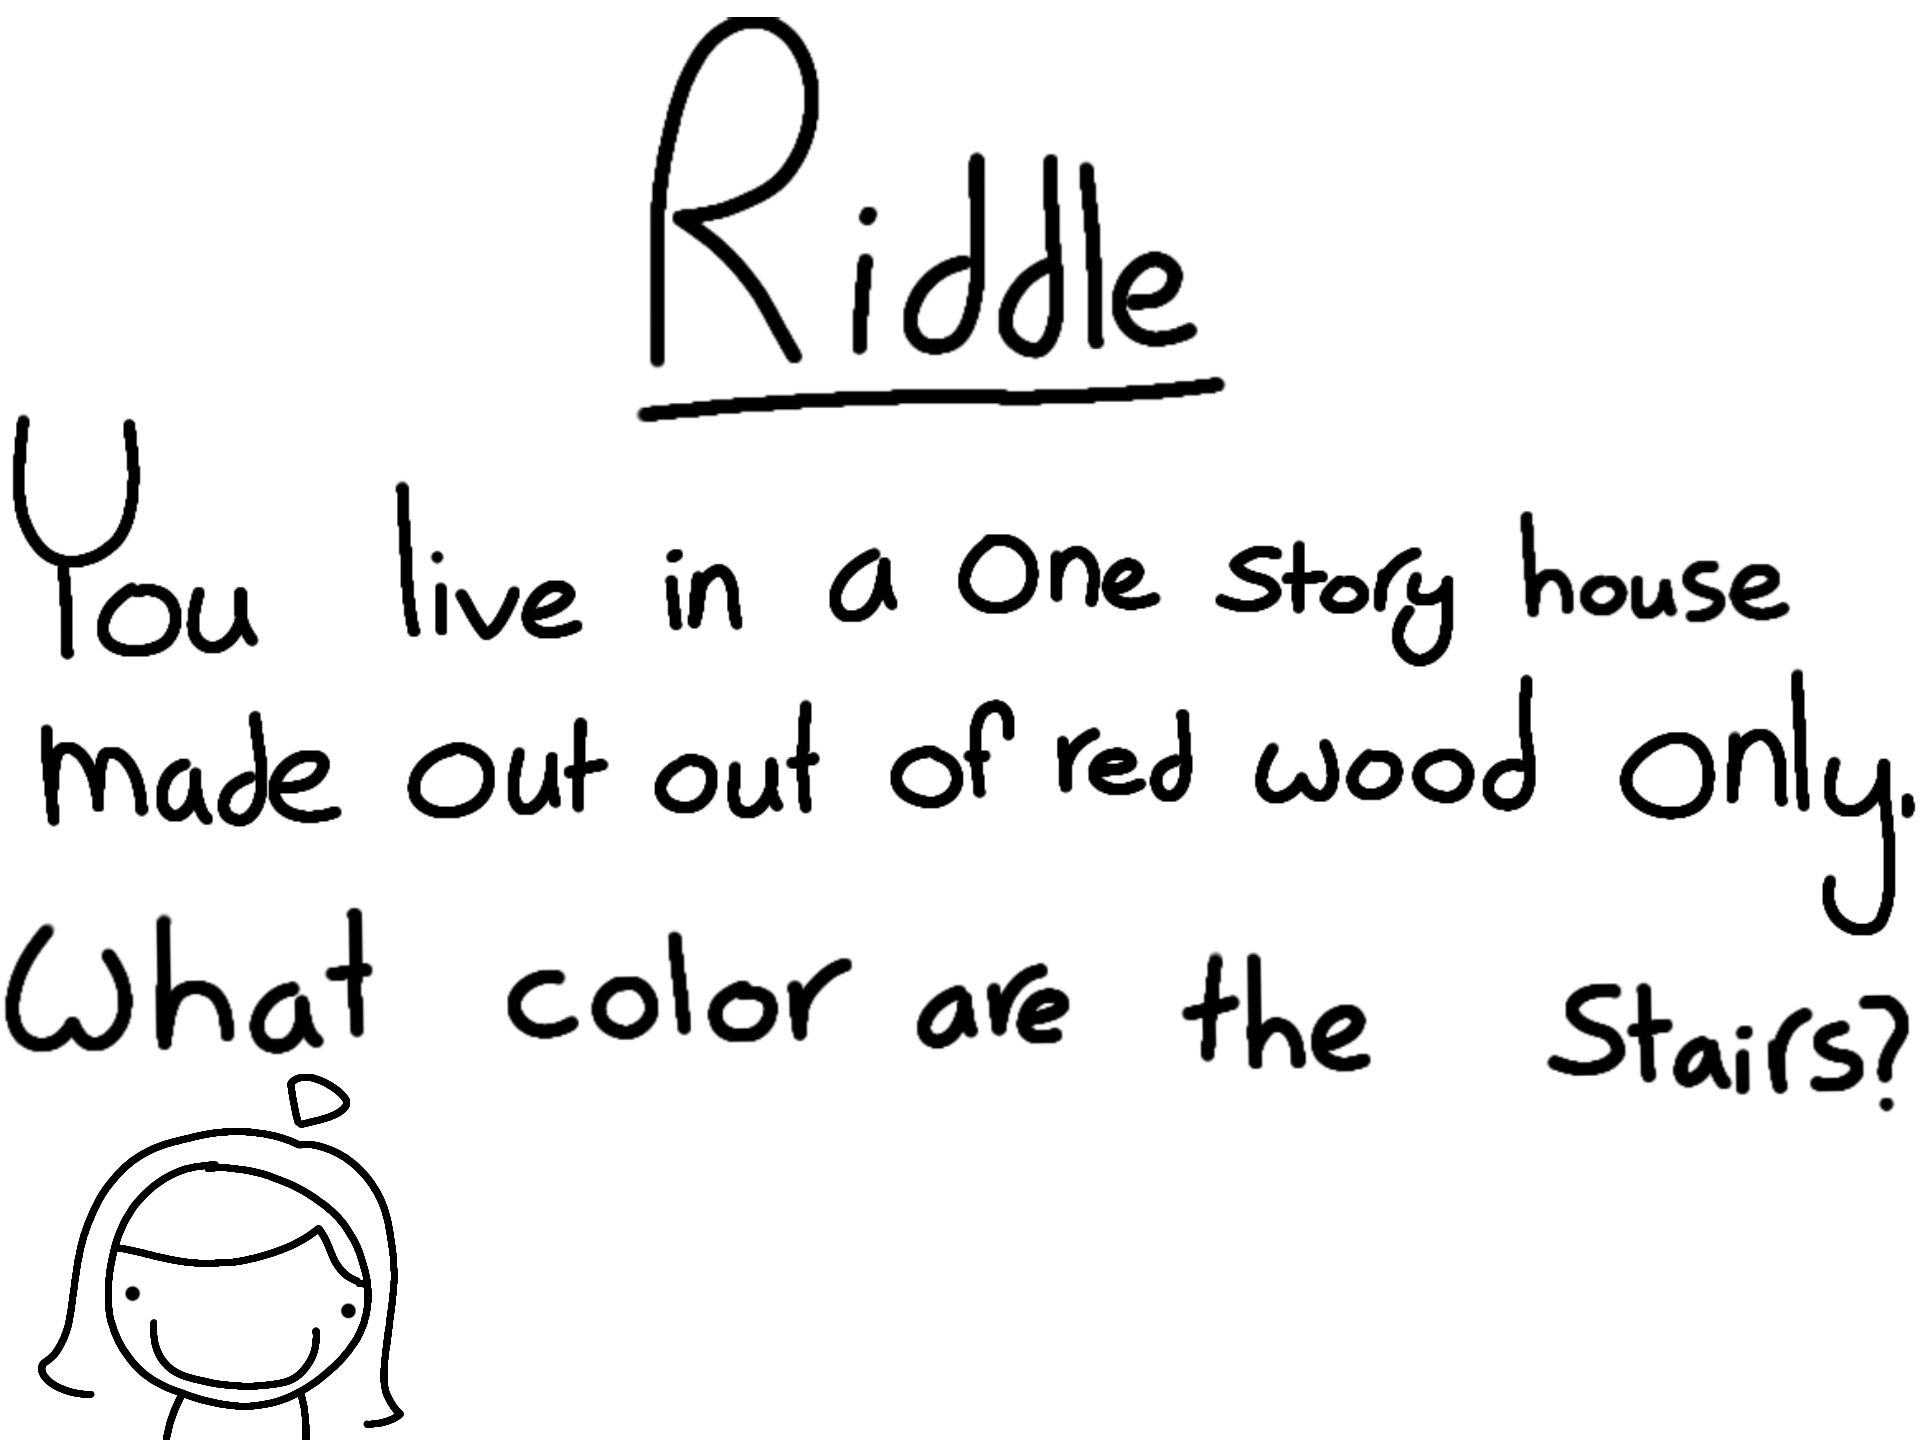 Riddle
You live in a One Story house
made out out of red wood only.
What color are the Stairs?